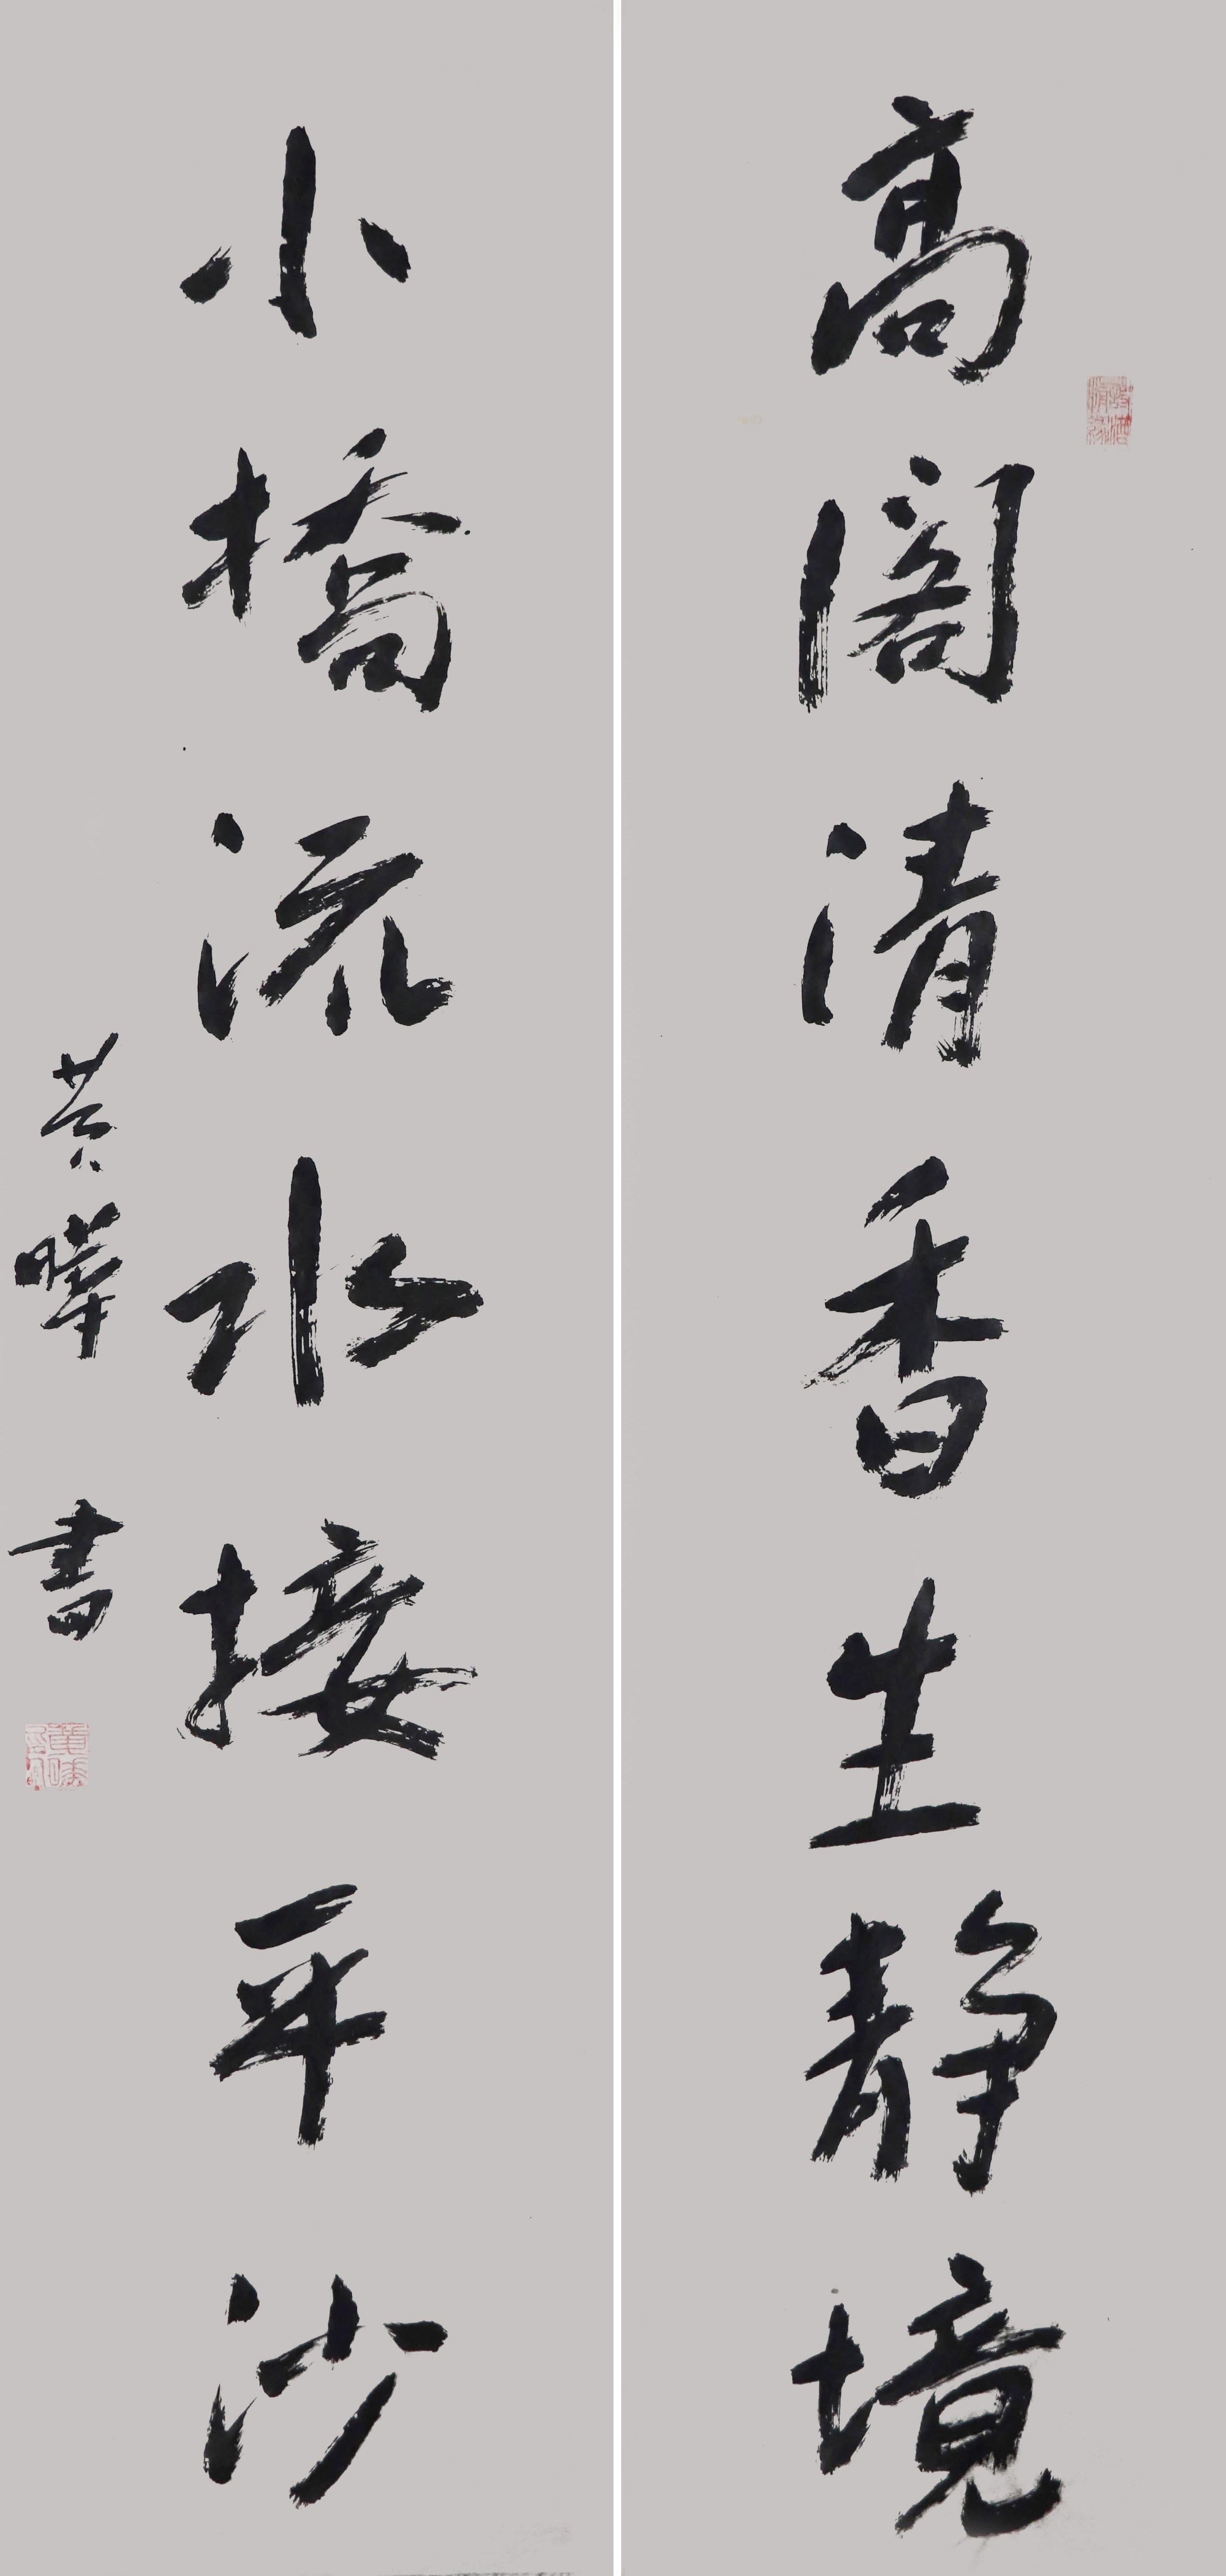 高閣清香生静境
小橋流水接平沙
黄曄書